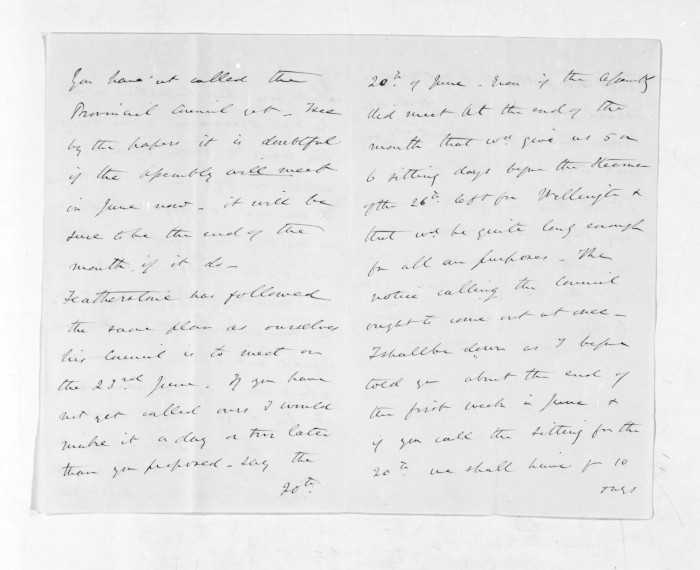 You have'nt called the
Provincial Council yet - I see
by the papers it is doubtful
if the Assembly will meet
in June now - it will be
sure to be the end of the
month if it do -
Featherstone has followed
the same plan as ourselves
his Council is to meet on
the 23rd June. If you have
not yet called ours I would
make it a day or two later
than you proposed - say the
20th
20th of June - Even if the Assembly
did meet at the end of the
month that wd give us 5 or
6 sitting days before the Steamer
of the 26th left for Wellington &
that wd be quite long enough
for all our purposes - The
notice calling the Council
ought to come out at once -
I shall be down as I before
told you about the end of
the first week in June &
if you call the sitting for the
20th we shall have 10
days